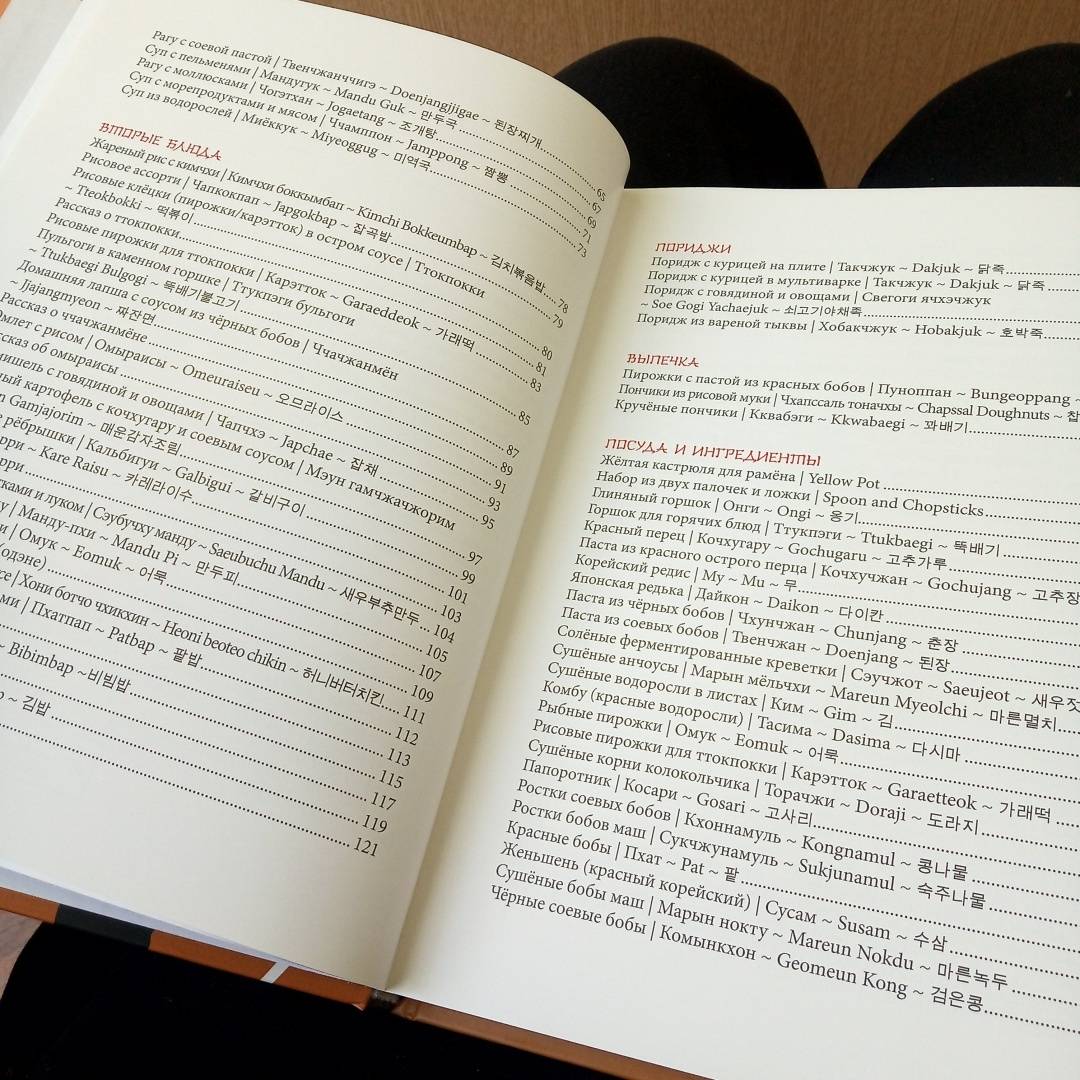 Рагу с соевой пастой | Твенчжанччигэ ~ Doenjangjjigae ~ 된장찌개
Суп с пельменями | Мандугук ~ Mandu Guk ~ 만두국 65
Рагу с моллюсками | Чогэтхан ~ Jogaetang ~ 조개탕 67
Суп с морепродуктами и мясом | Ччамппон ~ Jamppong ~ 짬뽕 69
Суп из водорослей | Миёккук ~ Miyeoggug ~ 미역국 71
73
ВТОРЫЕ БЛЮДА
Жареный рис с кимчхи | Кимчхи боккымбап ~ Kimchi Bokkeumbap ~ 김치볶음밥 78
Рисовое ассорти | Чапкокпап ~ Japgokbap ~ 잡곡밥 79
Рисовые клёцки (пирожки/карэтток) в остром соусе | Ттокпокки
~ Tteokbokki ~ 떡볶이 80
Рассказ о ттокпокки 81
Рисовые пирожки для ттокпокки | Карэтток ~ Garaeddeok ~ 가래떡 83
Пульгоги в каменном горшке | Ттукпэги бульгоги
~ Ttukbaegi Bulgogi ~ 뚝배기불고기 85
Домашняя лапша с соусом из чёрных бобов | Ччачжанмён
~ Jjajangmyeon ~ 짜잔면 87
Рассказ о ччачжанмёне 89
Омлет с рисом | Омыраисы ~ Omeuraiseu ~ 오므라이스 91
об омыраисы 93
с говядиной и овощами | Чапчхэ ~ Japchae ~ 잡채 95
картофель с кочхугару и соевым соусом | Мэун гамчжачжорим
Gamjajorim ~ 매운감자조림 97
рёбрышки | Кальбигуи ~ Galbigui ~ 갈비구이 99
~ Kare Raisu ~ 카레라이수 101
103
и луком | Сэубучху манду ~ Saeubuchu Mandu ~ 새우부추만두 104
| Манду-пхи ~ Mandu Pi ~ 만두피 105
| Омук ~ Eomuk ~ 어묵 107
(одэне) 109
| Хони ботчо чхикхин ~ Heoni beoteo chikin ~ 허니버터치킨 111
| Пхатпап ~ Patbap ~ 팥밥 112
113
~ Bibimbap ~ 비빔밥 115
117
~ 김밥 119
121
ПОРИДЖИ
Поридж с курицей на плите | Такчжук ~ Dakjuk ~ 닭죽
Поридж с курицей в мультиварке | Такчжук ~ Dakjuk ~ 닭죽
Поридж с говядиной и овощами | Свегоги ячхэчжук
~ Soe Gogi Yachaejuk ~ 쇠고기야채족
Поридж из вареной тыквы | Хобакчжук ~ Hobakjuk ~ 호박죽
ВЫПЕЧКА
Пирожки с пастой из красных бобов | Пуноппан ~ Bungeoppang ~
Пончики из рисовой муки | Чхапссаль тоначхы ~ Chapssal Doughnuts ~ 찹
Кручёные пончики | Кквабэги ~ Kkwabaegi ~ 꽈배기
ПОСУДА И ИНГРЕДИЕНТЫ
Жёлтая кастрюля для рамёна | Yellow Pot
Набор из двух палочек и ложки | Spoon and Chopsticks
Глиняный горшок | Онги ~ Ongi ~ 옹기
Горшок для горячих блюд | Ттукпэги ~ Ttukbaegi ~ 뚝배기
Красный перец | Кочхугару ~ Gochugaru ~ 고추가루
Паста из красного острого перца | Кочхучжан ~ Gochujang ~ 고추장
Корейский редис | Му ~ Mu ~ 무
Японская редька | Дайкон ~ Daikon ~ 다이칸
Паста из чёрных бобов | Чхунчжан ~ Chunjang ~ 춘장
Паста из соевых бобов | Твенчжан ~ Doenjang ~ 된장
Солёные ферментированные креветки | Сэучжот ~ Saeujeot ~ 새우젓
Сушёные анчоусы | Марын мёльчхи ~ Mareun Myeolchi ~ 마른멸치
Сушёные водоросли в листах | Ким ~ Gim ~ 김
Комбу (красные водоросли) | Тасима ~ Dasima ~ 다시마
Рыбные пирожки | Омук ~ Eomuk ~ 어묵
Рисовые пирожки для ттокпокки | Карэтток ~ Garaetteok ~ 가래떡
Сушёные корни колокольчика | Торачжи ~ Doraji ~ 도라지
Папоротник | Косари ~ Gosari ~ 고사리
Ростки соевых бобов | Кхоннамуль ~ Kongnamul ~ 콩나물
Ростки бобов маш | Сукчжунамуль ~ Sukjunamul ~ 숙주나물
Красные бобы | Пхат ~ Pat ~ 팥
Женьшень (красный корейский) | Сусам ~ Susam ~ 수삼
Сушёные бобы маш | Марын нокту ~ Mareun Nokdu ~ 마른녹두
Чёрные соевые бобы | Комынкхон ~ Geomeun Kong ~ 검은콩